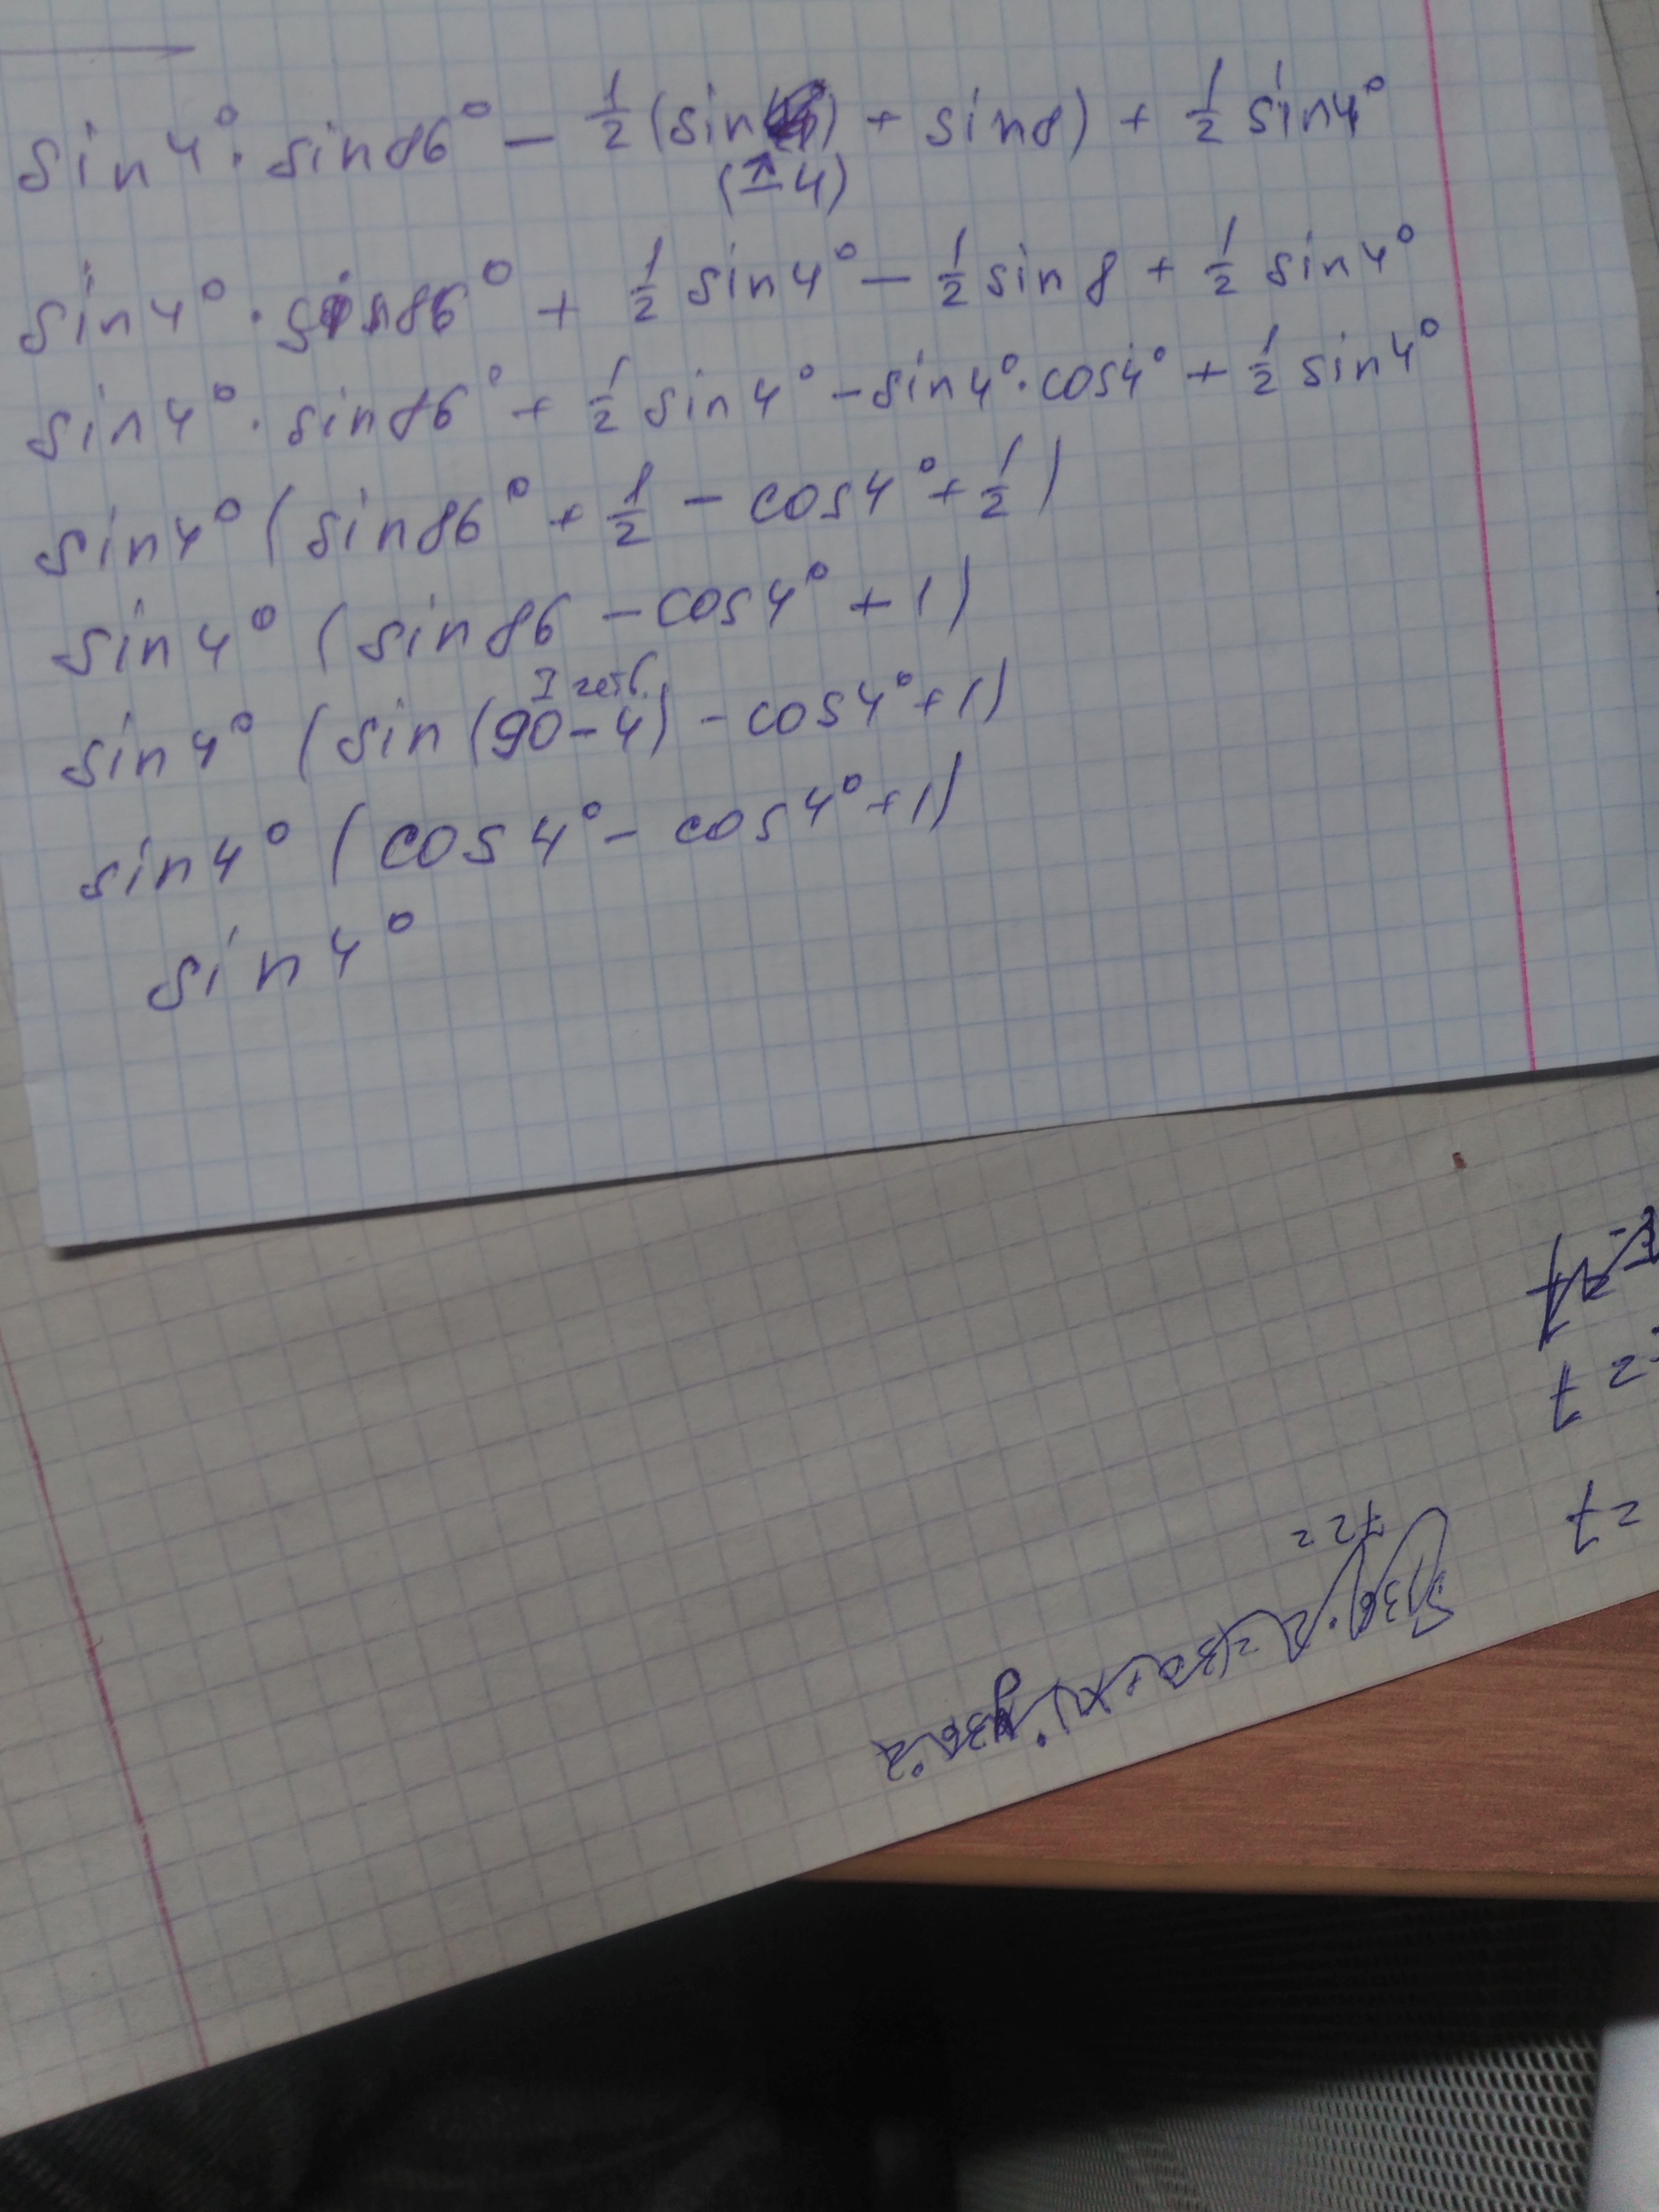 sin4° · sin86° - 1/2 (sin + sin8) + 1/2 sin4°
(-4)
sin4° · sin86° + 1/2 sin4° - 1/2 sin 8 + 1/2 sin4°
sin4° · sin86° + 1/2 sin4° - sin4° · cos4° + 1/2 sin4°
sin4° (sin86° + 1/2 - cos4° + 1/2)
sin4° (sin86 - cos4° + 1)
I четв.
sin4° (sin (90-4) - cos4° + 1)
sin4° (cos4° - cos4° + 1)
sin4°
=7